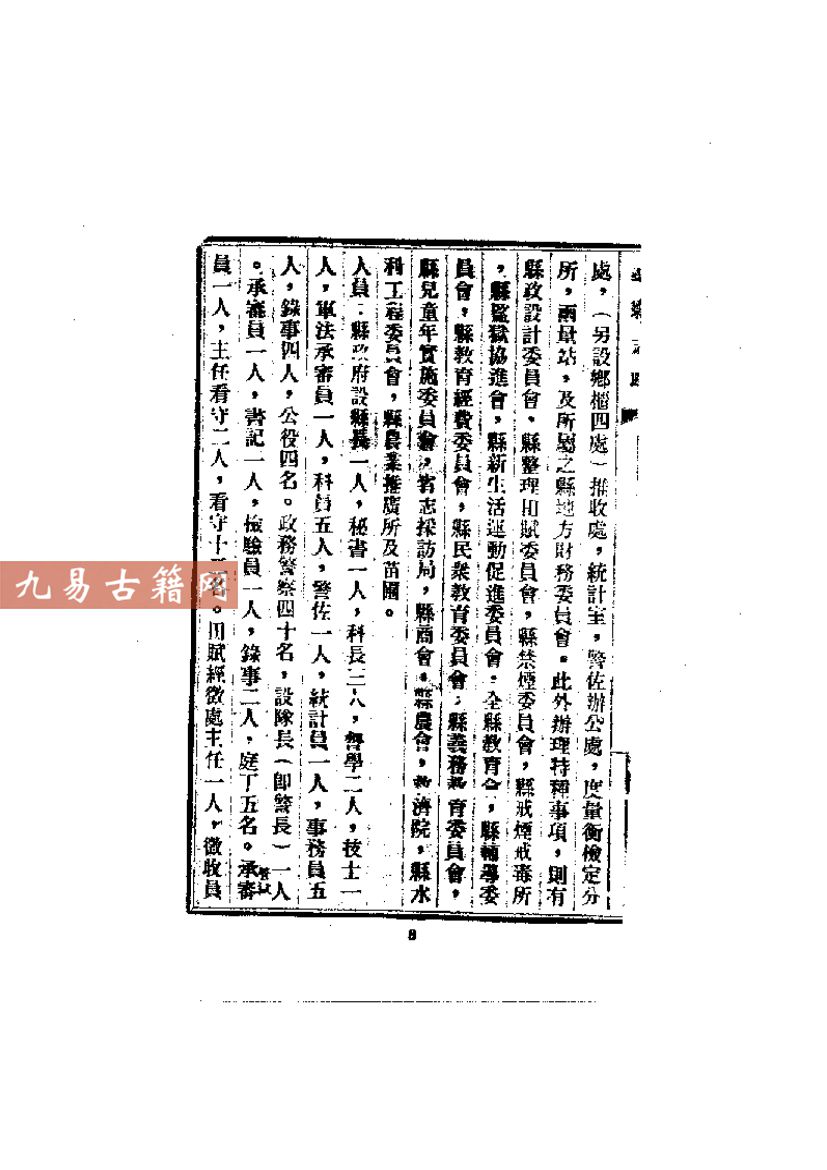 處，（另設鄉櫃四處）推收處，統計室，警佐辦公處，度量衡檢定分
所，雨量站，及所屬之縣地方財務委員會。此外辦理特種事項，則有
縣政設計委員會，縣整理田賦委員會，縣禁煙委員會，縣戒煙戒毒所
，縣監獄協進會，縣新生活運動促進委員會，全縣教育會，縣輔導委
員會，縣教育經費委員會，縣民衆教育委員會，縣義務教育委員會，
縣兒童年實施委員會，省志採訪局，縣商會，縣農會，救濟院，縣水
利工程委員會，縣農業推廣所及苗圃。
人員：縣政府設縣長一人，秘書一人，科長三人，督學二人，技士一
人，軍法承審員一人，科員五人，警佐一人，統計員一人，事務員五
人，錄事四人，公役四名。政務警察四十名，設隊長（卽警長）一人
。承審員一人，書記一人，檢驗員一人，錄事二人，庭丁五名。承審
員一人，主任看守二人，看守十名。田賦經徵處主任一人，徵收員
8
九易古籍网